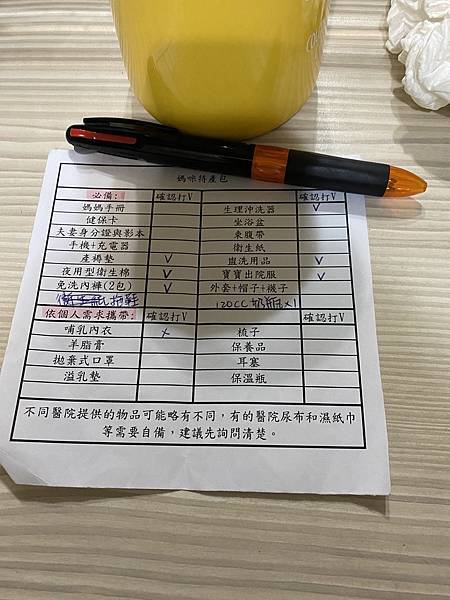 媽咪待產包
必備: 確認打V 確認打V
媽媽手冊 生理沖洗器 V
健保卡 坐浴盆
夫妻身分證與影本 束腹帶
手機+充電器 衛生紙
產褥墊 V 盥洗用品 V
夜用型衛生棉 V 寶寶出院服 V
免洗內褲(2包) V 外套+帽子+襪子
拖鞋 120cc 奶瓶x1
依個人需求攜帶: 確認打V 確認打V
哺乳內衣 x 梳子
羊脂膏 保養品
拋棄式口罩 耳塞
溢乳墊 保溫瓶
不同醫院提供的物品可能略有不同，有的醫院尿布和濕紙巾
等需要自備，建議先詢問清楚。